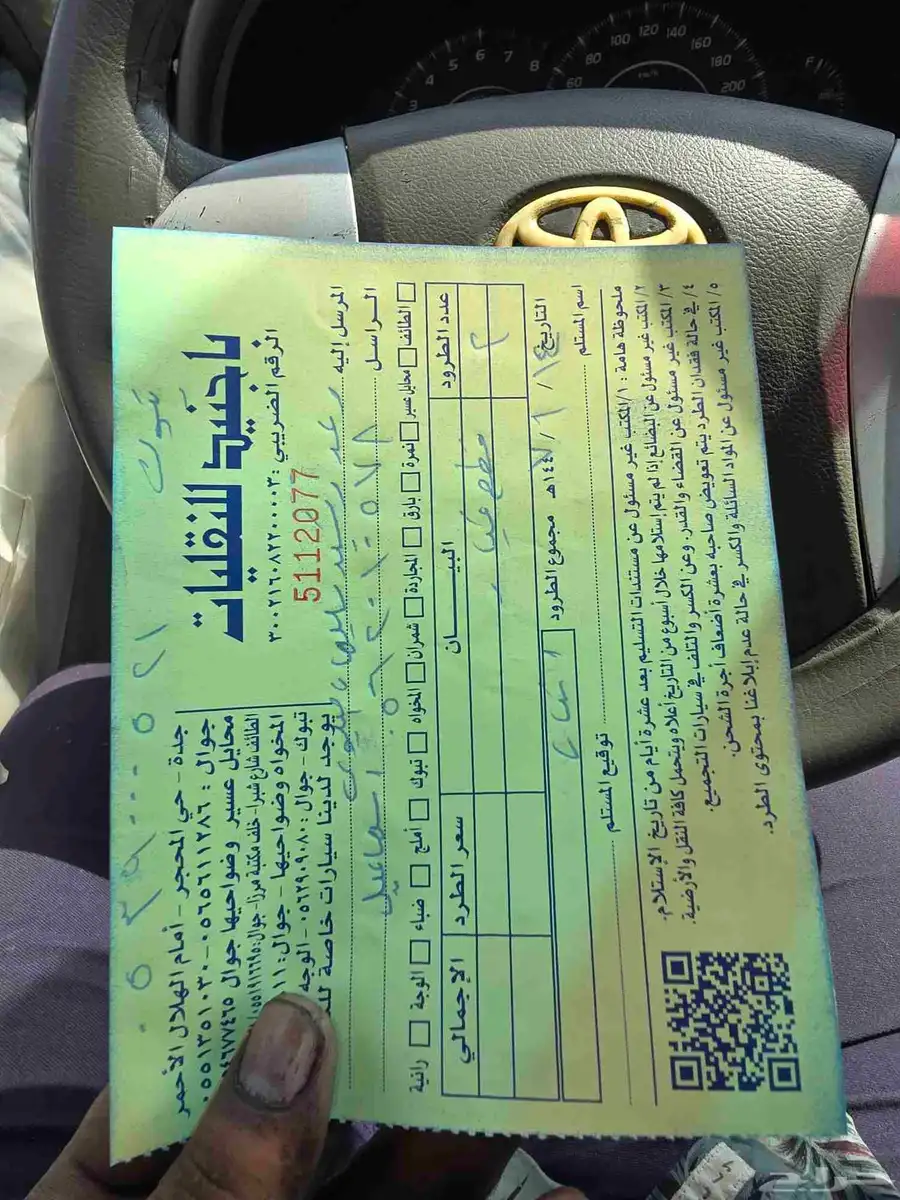 تبوك
باجنيد للنقليات
الرقم الضريبي : ٣٠٠٢١٦٠٨٢٢٠٠٠٠٣
5112077
جدة - حي المحجر - أمام الهلال الأحمر
جوال : ٠٥٦٥٦١١٢٨٦ - ٠٥٥١٣٥١٠٣٠
محايل عسير وضواحيها جوال
الطائف شارع شبرا - خلف مكتبة مرزا - جوال:
المخواه وضواحيها - جوال :
تبوك - جوال : ٠٥٦٢٩٠٩٠٨٠ - الوجه
يوجد لدينا سيارات خاصة
المرسل إليه
الراسل
اسماعيل
الطائف محايل عسير نمرة بارق المجاردة شمران المخواه تبوك أملج ضباء الوجة رانية
عدد الطرود البيـــان سعر الطرد الإجمالي
٢
التاريخ ١٤ / ١ / ١٤٤٧هـ مجموع الطرود
اسم المستلم توقيع المستلم
ملحوظة هامة : ١/ المكتب غير مسئول عن مستندات التسليم بعد عشرة أيام من تاريخ الإستلام.
٢/ المكتب غير مسئول عن البضائع إذا لم يتم إستلامها خلال أسبوع من التاريخ أعلاه ويتحمل كافة النقل والأرضية.
٣/ المكتب غير مسئول عن القضاء والقدر، وعن الكسر والتلف في سيارات التجميع.
٤/ في حالة فقدان الطرد يتم تعويض صاحبه بعشرة أضعاف أجرة الشحن.
٥/ المكتب غير مسئول عن المواد السائلة والكسر في حالة عدم إبلاغنا بمحتوى الطرد.
3 4 5 6 7 8
60 80 100 120 140 160 180 200
km/h
F
حراج